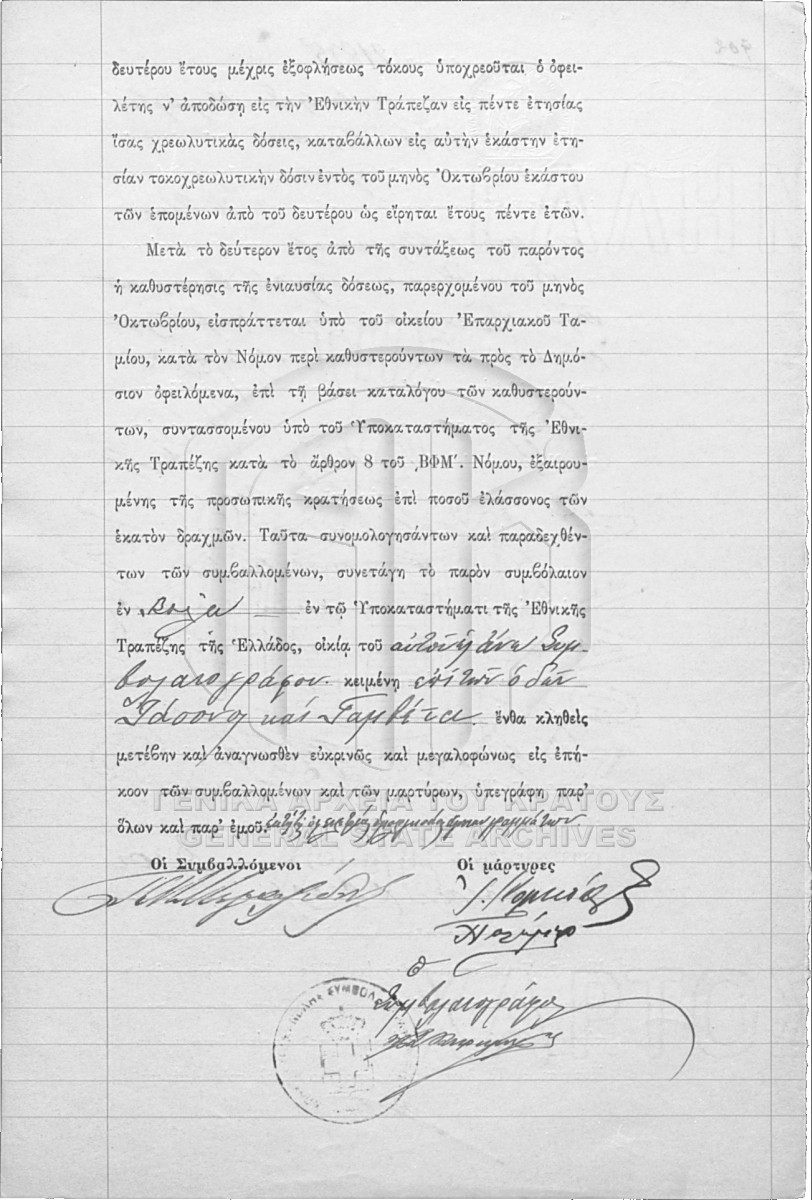 δευτέρου ἔτους μέχρις ἐξοφλήσεως τόκους ὑποχρεοῦται ὁ ὀφει-
λέτης ν' ἀποδώσῃ εἰς τὴν Ἐθνικὴν Τράπεζαν εἰς πέντε ἐτησίας
ἴσας χρεωλυτικὰς δόσεις, καταβάλλων εἰς αὐτὴν ἑκάστην ἐτη-
σίαν τοκοχρεωλυτικὴν δόσιν ἐντὸς τοῦ μηνὸς Ὀκτωβρίου ἑκάστου
τῶν ἑπομένων ἀπὸ τοῦ δευτέρου ὡς εἴρηται ἔτους πέντε ἐτῶν.
Μετὰ τὸ δεύτερον ἔτος ἀπὸ τῆς συντάξεως τοῦ παρόντος
ἡ καθυστέρησις τῆς ἐνιαυσίας δόσεως, παρερχομένου τοῦ μηνὸς
Ὀκτωβρίου, εἰσπράττεται ὑπὸ τοῦ οἰκείου Ἐπαρχιακοῦ Τα-
μίου, κατὰ τὸν Νόμον περὶ καθυστερούντων τὰ πρὸς τὸ Δημό-
σιον ὀφειλόμενα, ἐπὶ τῇ βάσει καταλόγου τῶν καθυστερούν-
των, συντασσομένου ὑπὸ τοῦ Ὑποκαταστήματος τῆς Ἐθνι-
κῆς Τραπέζης κατὰ τὸ ἄρθρον 8 τοῦ ͵ΒΦΜʹ. Νόμου, ἐξαιρου-
μένης τῆς προσωπικῆς κρατήσεως ἐπὶ ποσοῦ ἐλάσσονος τῶν
ἑκατὸν δραχμῶν. Ταῦτα συνομολογησάντων καὶ παραδεχθέν-
των τῶν συμβαλλομένων, συνετάγη τὸ παρὸν συμβόλαιον
ἐν ἐν τῷ Ὑποκαταστήματι τῆς Ἐθνικῆς
Τραπέζης τῆς Ἑλλάδος, οἰκίᾳ τοῦ Συμ-
βολαιογράφου κειμένῃ ἐπὶ τῶν ὁδῶν
Ἰάσονος καὶ Γαμβέτα ἔνθα κληθεὶς
μετέβην καὶ ἀναγνωσθὲν εὐκρινῶς καὶ μεγαλοφώνως εἰς ἐπή-
κοον τῶν συμβαλλομένων καὶ τῶν μαρτύρων, ὑπεγράφη παρ'
ΓΕΝΙΚΑ ΑΡΧΕΙΑ ΤΟΥ ΚΡΑΤΟΥΣ
ὅλων καὶ παρ' ἐμοῦ.
GENERAL STATE ARCHIVES
Οἱ Συμβαλλόμενοι Οἱ μάρτυρες
Ὁ
Συμβολαιογράφος